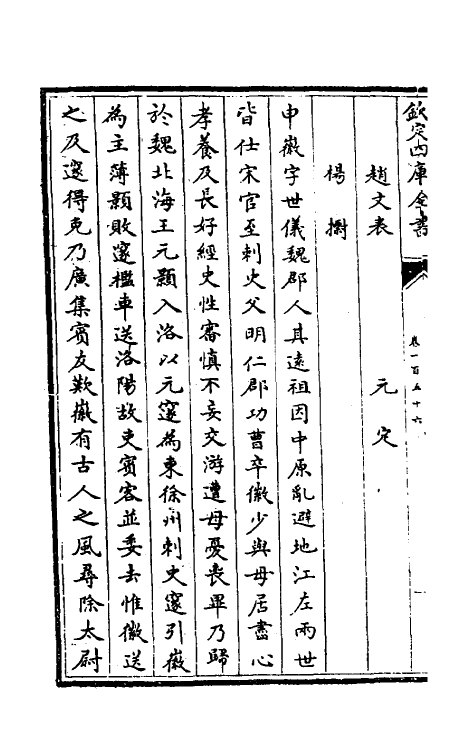 欽定四庫全書
卷一百五十六
趙文表 元定
楊㯹
申徽字世儀魏郡人其遠祖因中原亂避地江左兩世
皆仕宋官至刺史父明仁郡功曹卒徽少與母居盡心
孝養及長好經史性審慎不妄交游遭母憂喪畢乃歸
於魏北海王元顥入洛以元邃為東徐州刺史邃引徽
為主簿顥敗邃檻車送洛陽故吏賓客並委去惟徽送
之及邃得免乃廣集賓友歎徽有古人之風尋除太尉